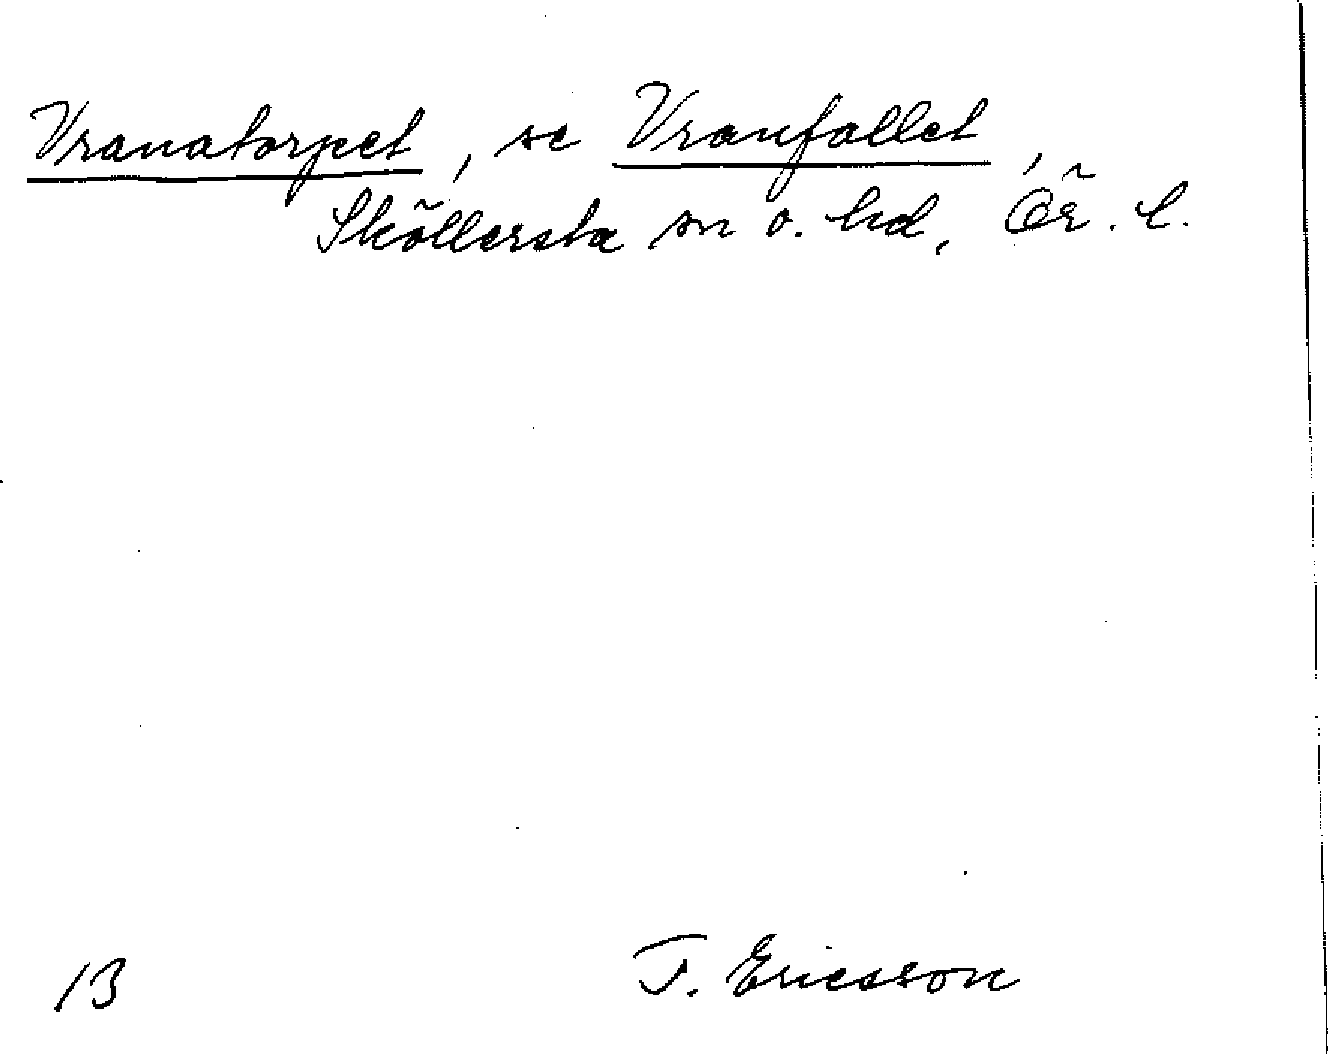 Vranatorpet, se Vranfallet,
Sköllersta sn o. hd, Ör. l.
13 T. Ericsson